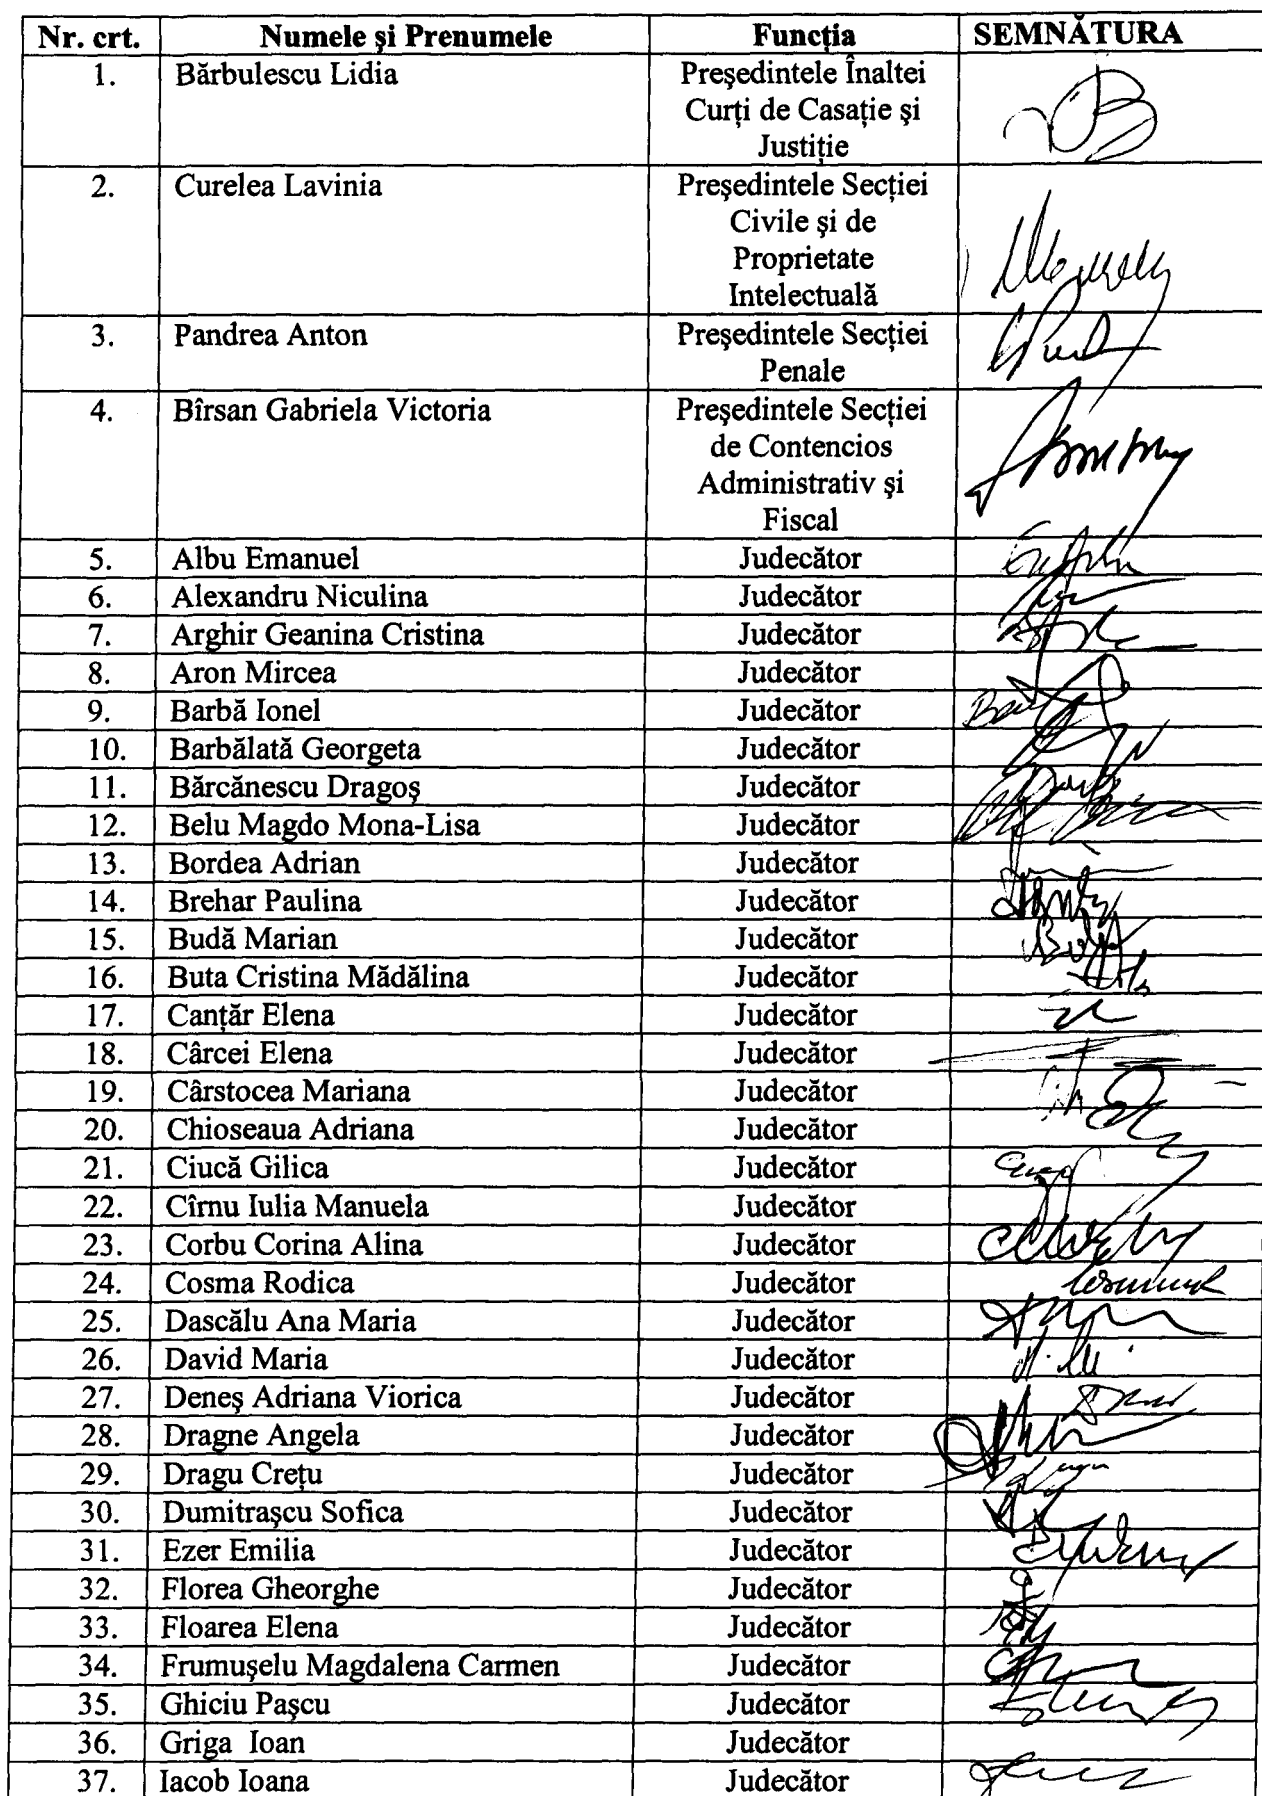 Nr. crt. Numele şi Prenumele Funcţia SEMNĂTURA
1. Bărbulescu Lidia Preşedintele Înaltei
Curţi de Casaţie şi
Justiţie
2. Curelea Lavinia Preşedintele Secţiei
Civile şi de
Proprietate
Intelectuală
3. Pandrea Anton Preşedintele Secţiei
Penale
4. Bîrsan Gabriela Victoria Preşedintele Secţiei
de Contencios
Administrativ şi
Fiscal
5. Albu Emanuel Judecător
6. Alexandru Niculina Judecător
7. Arghir Geanina Cristina Judecător
8. Aron Mircea Judecător
9. Barbă Ionel Judecător
10. Barbălată Georgeta Judecător
11. Bărcănescu Dragoş Judecător
12. Belu Magdo Mona-Lisa Judecător
13. Bordea Adrian Judecător
14. Brehar Paulina Judecător
15. Budă Marian Judecător
16. Buta Cristina Mădălina Judecător
17. Canţăr Elena Judecător
18. Cârcei Elena Judecător
19. Cârstocea Mariana Judecător
20. Chioseaua Adriana Judecător
21. Ciucă Gilica Judecător
22. Cîrnu Iulia Manuela Judecător
23. Corbu Corina Alina Judecător
24. Cosma Rodica Judecător
25. Dascălu Ana Maria Judecător
26. David Maria Judecător
27. Deneş Adriana Viorica Judecător
28. Dragne Angela Judecător
29. Dragu Creţu Judecător
30. Dumitraşcu Sofica Judecător
31. Ezer Emilia Judecător
32. Florea Gheorghe Judecător
33. Floarea Elena Judecător
34. Frumuşelu Magdalena Carmen Judecător
35. Ghiciu Paşcu Judecător
36. Griga Ioan Judecător
37. Iacob Ioana Judecător